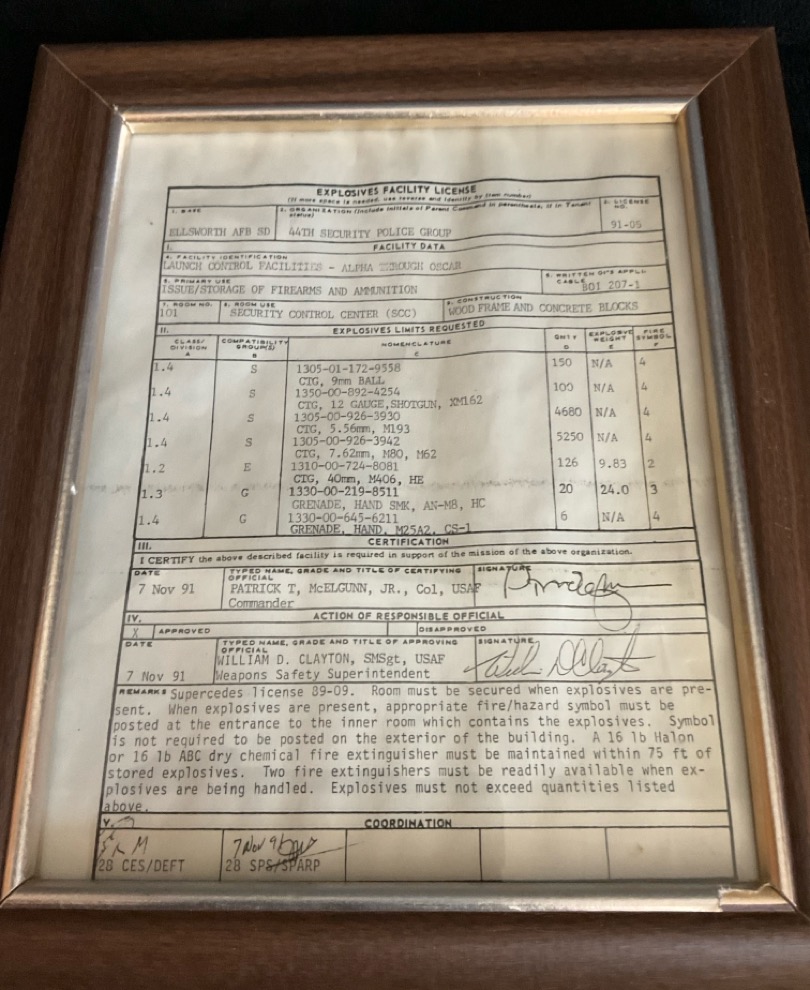 EXPLOSIVES FACILITY LICENSE
(If more space is needed, use reverse and identify by item number)
1. BASE
ELLSWORTH AFB SD
2. ORGANIZATION (Include initials of Parent Command in parenthesis, if in Tenant status)
44TH SECURITY POLICE GROUP
3. LICENSE NO.
91-05
I. FACILITY DATA
4. FACILITY IDENTIFICATION
LAUNCH CONTROL FACILITIES - ALPHA THROUGH OSCAR
5. PRIMARY USE
ISSUE/STORAGE OF FIREARMS AND AMMUNITION
6. WRITTEN OI'S APPLICABLE
BOI 207-1
7. ROOM NO.
101
8. ROOM USE
SECURITY CONTROL CENTER (SCC)
9. CONSTRUCTION
WOOD FRAME AND CONCRETE BLOCKS
II. EXPLOSIVES LIMITS REQUESTED
CLASS/DIVISION A
COMPATIBILITY GROUP(S) B
NOMENCLATURE C
QNTY D
EXPLOSIVE WEIGHT E
FIRE SYMBOL F
1.4 S 1305-01-172-9558 150 N/A 4
CTG, 9mm BALL
1.4 S 1350-00-892-4254 100 N/A 4
CTG, 12 GAUGE,SHOTGUN, XM162
1.4 S 1305-00-926-3930 4680 N/A 4
CTG, 5.56mm, M193
1.4 S 1305-00-926-3942 5250 N/A 4
CTG, 7.62mm, M80, M62
1.2 E 1310-00-724-8081 126 9.83 2
CTG, 40mm, M406, HE
1.3 G 1330-00-219-8511 20 24.0 3
GRENADE, HAND SMK, AN-M8, HC
1.4 G 1330-00-645-6211 6 N/A 4
GRENADE, HAND, M25A2, CS-1
III. CERTIFICATION
I CERTIFY the above described facility is required in support of the mission of the above organization.
DATE
7 Nov 91
TYPED NAME, GRADE AND TITLE OF CERTIFYING OFFICIAL
PATRICK T, McELGUNN, JR., Col, USAF
Commander
SIGNATURE
IV. ACTION OF RESPONSIBLE OFFICIAL
X APPROVED
DISAPPROVED
DATE
7 Nov 91
TYPED NAME, GRADE AND TITLE OF APPROVING OFFICIAL
WILLIAM D. CLAYTON, SMSgt, USAF
Weapons Safety Superintendent
SIGNATURE
REMARKS Supercedes license 89-09. Room must be secured when explosives are pre-
sent. When explosives are present, appropriate fire/hazard symbol must be
posted at the entrance to the inner room which contains the explosives. Symbol
is not required to be posted on the exterior of the building. A 16 lb Halon
or 16 lb ABC dry chemical fire extinguisher must be maintained within 75 ft of
stored explosives. Two fire extinguishers must be readily available when ex-
plosives are being handled. Explosives must not exceed quantities listed
above.
V. COORDINATION
28 CES/DEFT
7 Nov 91
28 SPS/SPARP